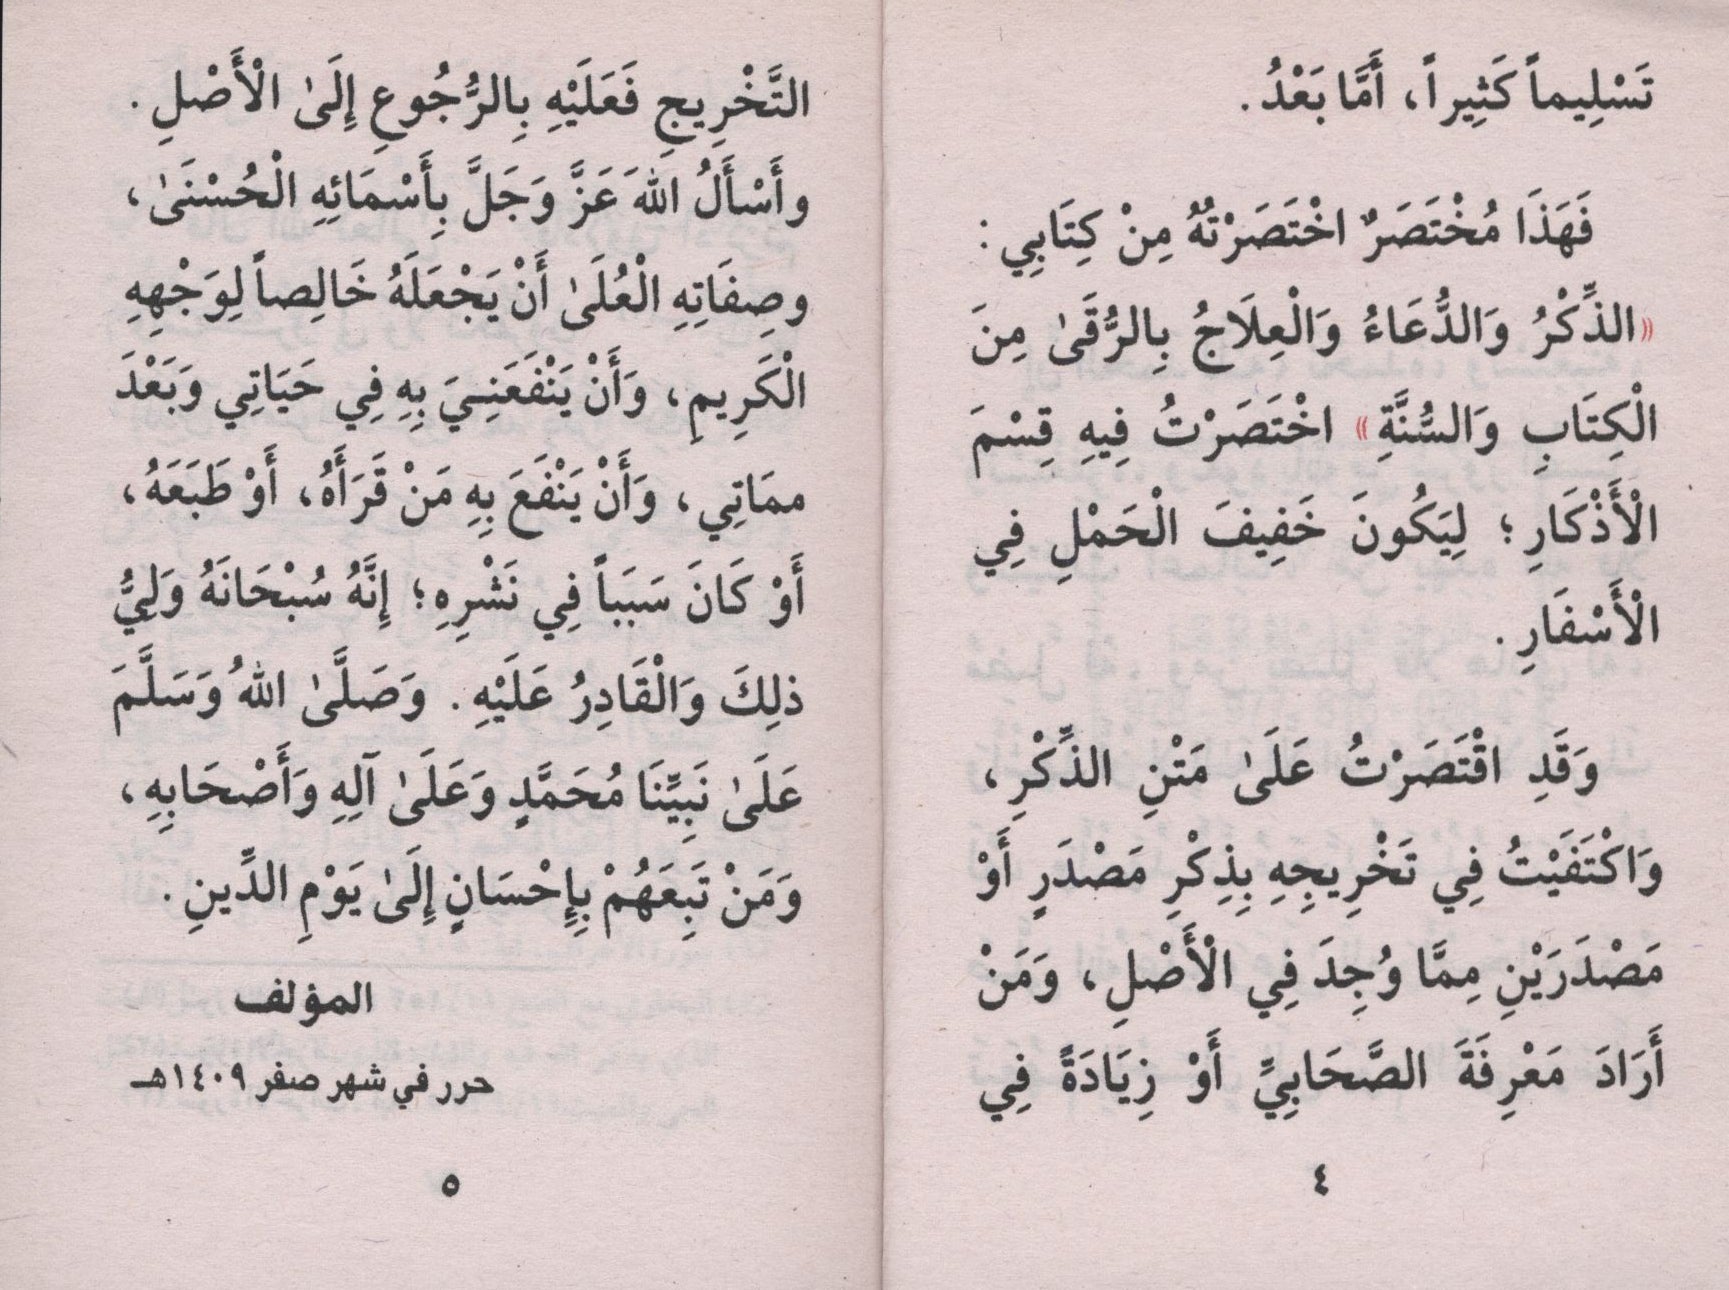 تَسْلِيماً كَثِيراً، أَمَّا بَعْدُ.
فَهَذَا مُخْتَصَرٌ اخْتَصَرْتُهُ مِنْ كِتَابِي:
«الذِّكْرُ وَالدُّعَاءُ وَالْعِلَاجُ بِالرُّقَىٰ مِنَ
الْكِتَابِ وَالسُّنَّةِ» اخْتَصَرْتُ فِيهِ قِسْمَ
الْأَذْكَارِ؛ لِيَكُونَ خَفِيفَ الْحَمْلِ فِي
الْأَسْفَارِ.
وَقَدِ اقْتَصَرْتُ عَلَىٰ مَتْنِ الذِّكْرِ،
وَاكْتَفَيْتُ فِي تَخْرِيجِهِ بِذِكْرِ مَصْدَرٍ أَوْ
مَصْدَرَيْنِ مِمَّا وُجِدَ فِي الْأَصْلِ، وَمَنْ
أَرَادَ مَعْرِفَةَ الصَّحَابِيِّ أَوْ زِيَادَةً فِي
٤
التَّخْرِيجِ فَعَلَيْهِ بِالرُّجُوعِ إِلَىٰ الْأَصْلِ.
وأَسْأَلُ اللهَ عَزَّ وَجَلَّ بِأَسْمَائِهِ الْحُسْنَىٰ،
وصِفَاتِهِ الْعُلَىٰ أَنْ يَجْعَلَهُ خَالِصاً لِوَجْهِهِ
الْكَرِيمِ، وَأَنْ يَنْفَعَنِيَ بِهِ فِي حَيَاتِي وَبَعْدَ
ممَاتِي، وَأَنْ يَنْفَعَ بِهِ مَنْ قَرَأَهُ، أَوْ طَبَعَهُ،
أَوْ كَانَ سَبَباً فِي نَشْرِهِ؛ إِنَّهُ سُبْحَانَهُ وَلِيُّ
ذلِكَ وَالْقَادِرُ عَلَيْهِ. وَصَلَّىٰ اللهُ وَسَلَّمَ
عَلَىٰ نَبِيِّنَا مُحَمَّدٍ وَعَلَىٰ آلِهِ وَأَصْحَابِهِ،
وَمَنْ تَبِعَهُمْ بِإِحْسَانٍ إِلَىٰ يَوْمِ الدِّينِ.
المؤلف
حرر في شهر صفر ١٤٠٩هـ
٥